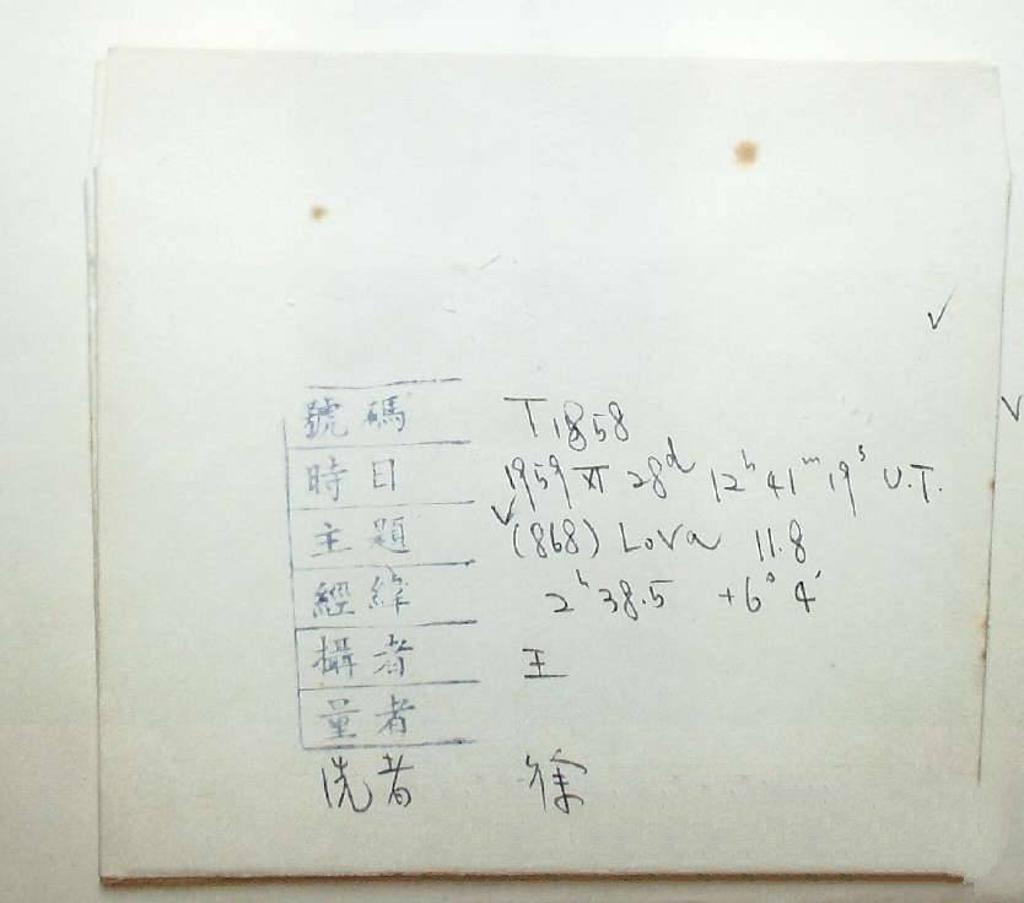 號碼 T1858
時日 1959 XI 28d 12h 41m 19s U.T.
主題 (868) Lova 11.8
經緯 2h 38.5 +6° 4'
攝者 王
量者
洗者 徐